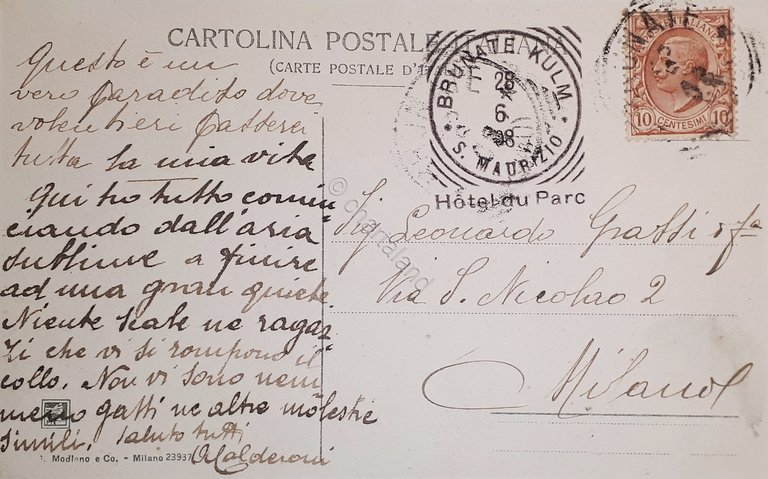 CARTOLINA POSTALE ITALIANA
(CARTE POSTALE D'I
Questo è un
vero paradiso dove
volentieri passerei
tutta la mia vita
Qui ho tutto comin
ciando dall'aria
sublime a finire
ad una gran quiete.
Niente scale ne ragaz
zi che vi si rompono il
collo. Non vi sono nem
meno gatti ne altre molestie
simili. Saluto tutti
Calderoni
. Modiano e Co. - Milano 23937
BRUNATE KULM
28
6
08
S. MAURIZIO
Hôtel du Parc
10 CENTESIMI 10
Sig Leonardo Grassi & fa
Via S. Nicolao 2
Milano
© chartaland